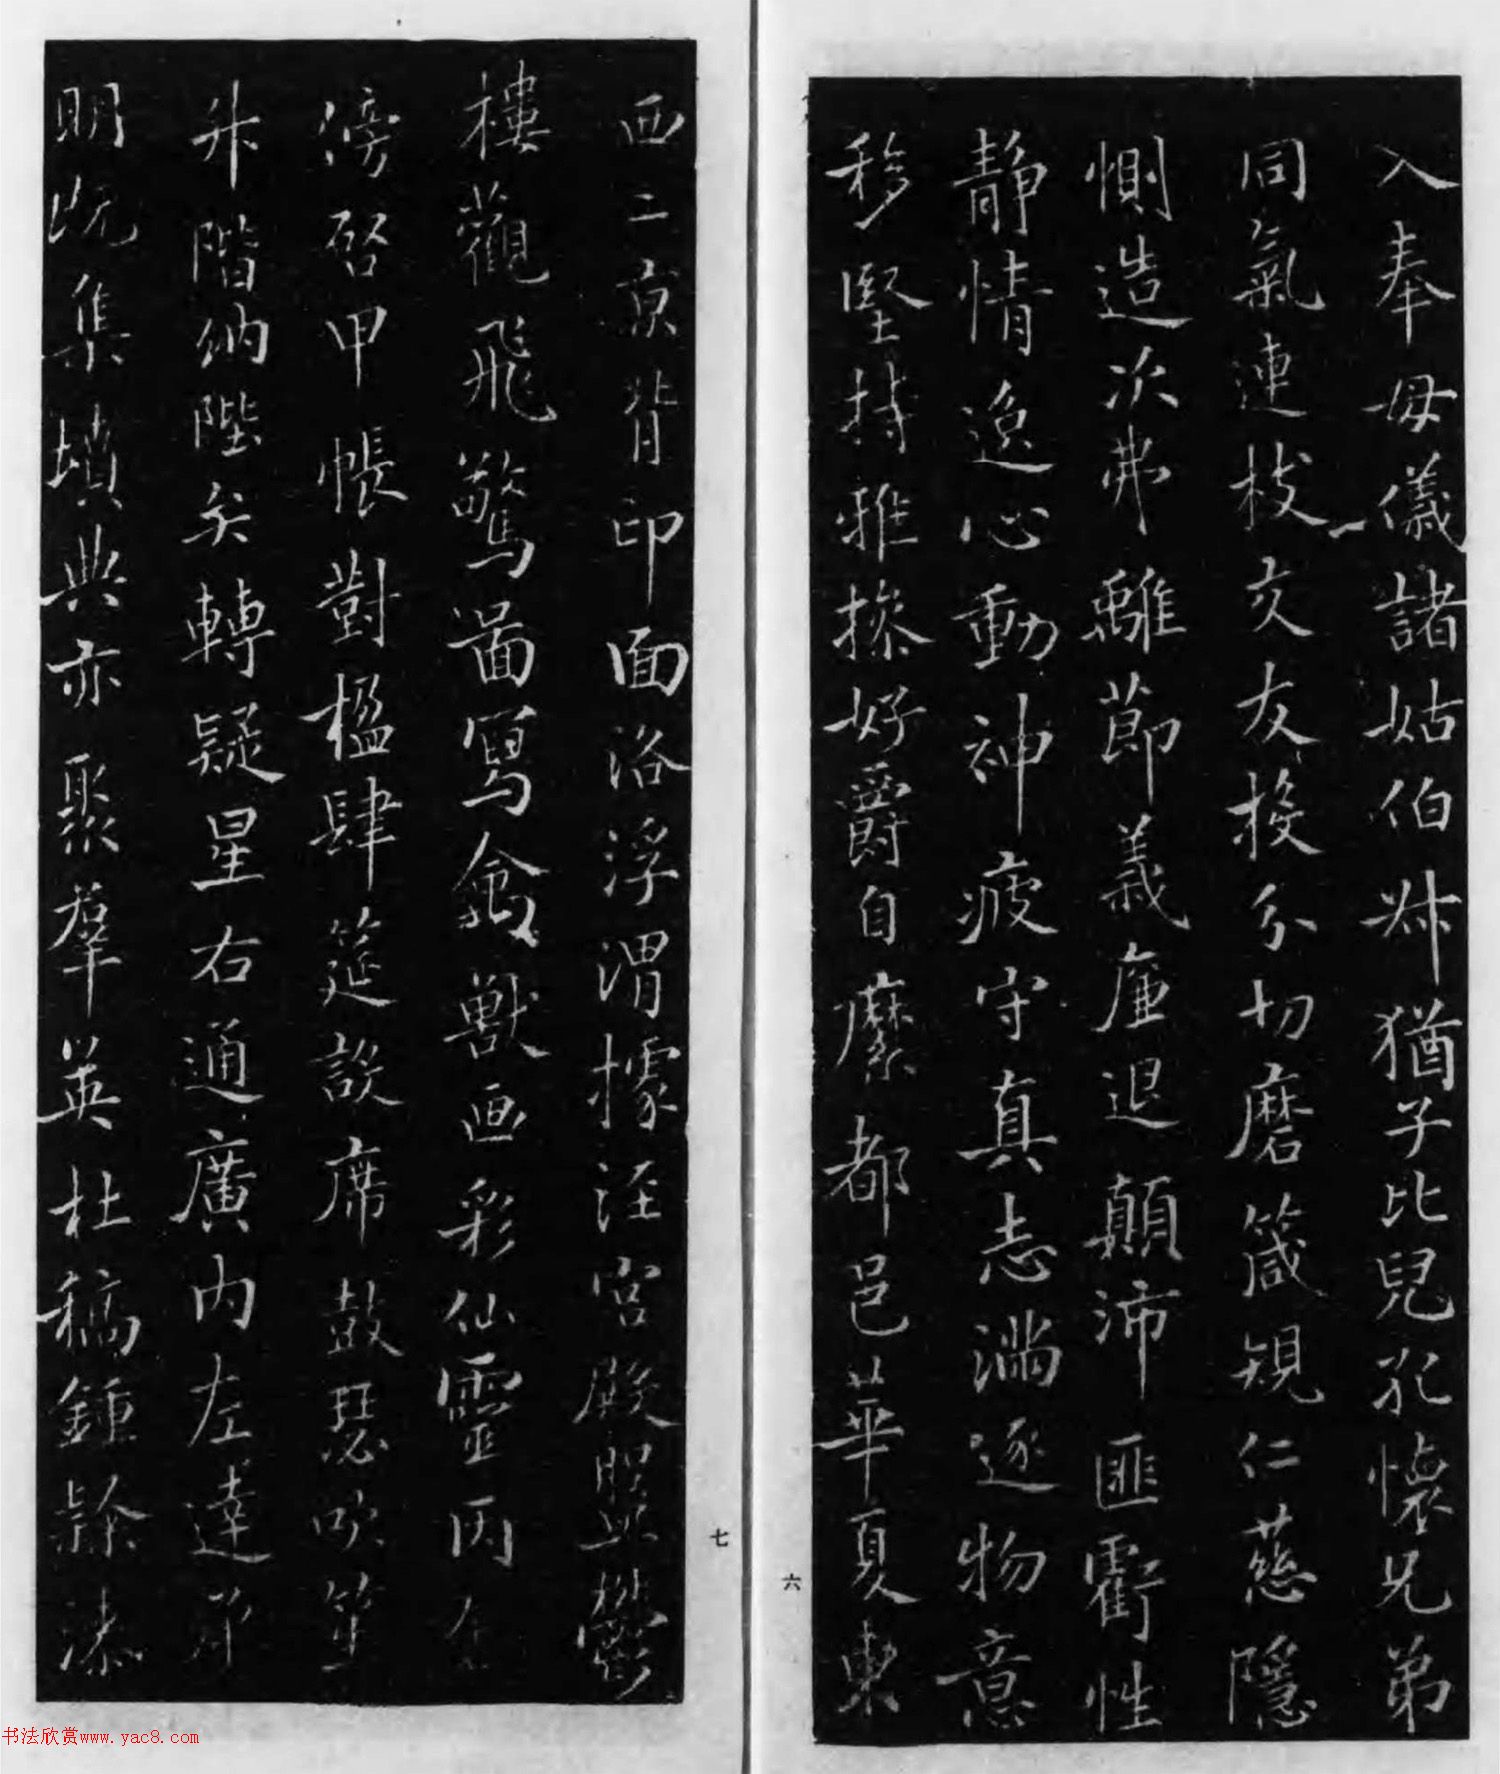 入奉母儀諸姑伯叔猶子比兒孔懷兄弟
同氣連枝交友投分切磨箴規仁慈隱
惻造次弗離節義廉退顛沛匪虧性
靜情逸心動神疲守真志滿逐物意
移堅持雅操好爵自縻都邑華夏東
六
西二京背邙面洛浮渭據涇宮殿盤鬱
樓觀飛驚圖寫禽獸画彩仙靈丙舍
傍啓甲帳對楹肆筵設席鼓瑟吹笙
升階納陛弁轉疑星右通廣內左達承
明既集墳典亦聚羣英杜稿鍾隸漆
七
书法欣赏www.yac8.com